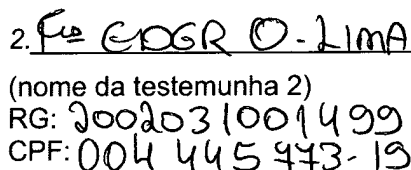 2. Fco EDGR O-LIMA
(nome da testemunha 2)
RG: 2002031001499
CPF: 004 445 973-19